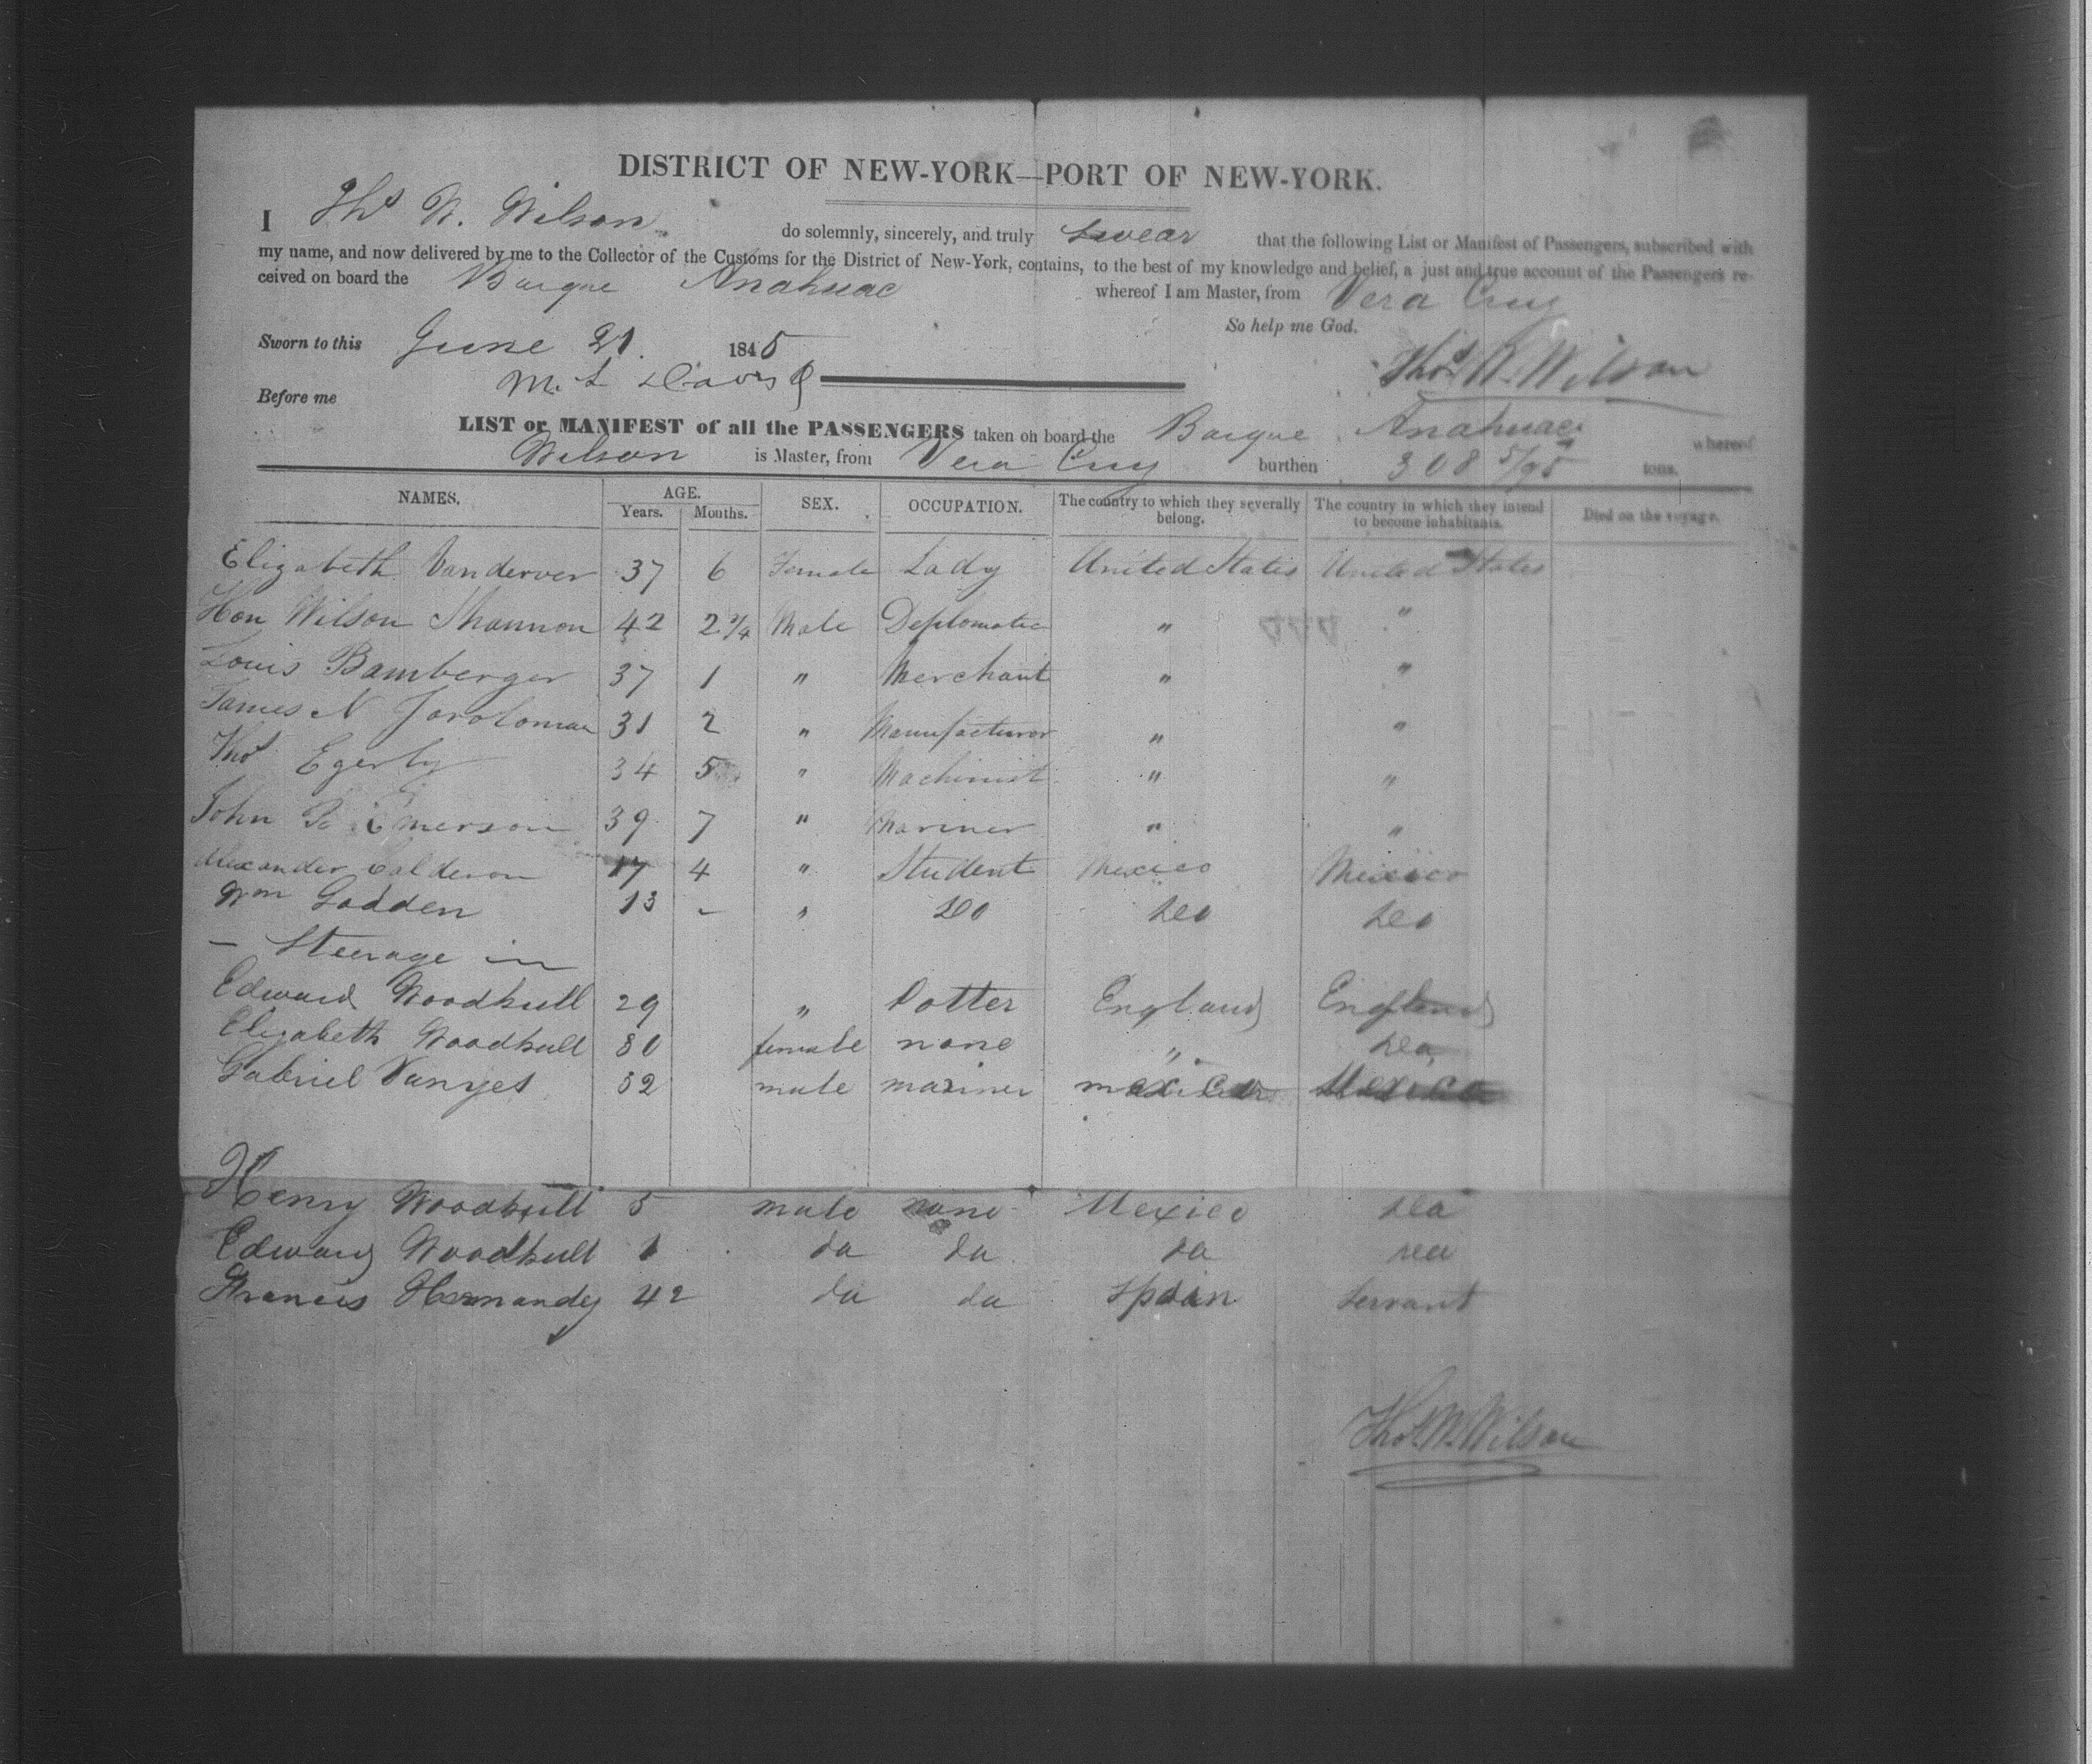 DISTRICT OF NEW-YORK—PORT OF NEW-YORK.
I Thos W. Wilson do solemnly, sincerely, and truly swear that the following List or Manifest of Passengers, subscribed with
my name, and now delivered by me to the Collector of the Customs for the District of New-York, contains, to the best of my knowledge and belief, a just and true account of the Passengers re-
ceived on board the Barque Anahuac whereof I am Master, from Vera Cruz
So help me God.
Sworn to this June 21. 1845
Thos. W. Wilson
Before me M. L Davis
LIST or MANIFEST of all the PASSENGERS taken on board the Barque Anahuac whereof
Wilson is Master, from Vera Cruz burthen 308 5/95 tons.
NAMES. AGE. Years. Months. SEX. OCCUPATION. The country to which they severally belong. The country in which they intend to become inhabitants. Died on the voyage.
Elizabeth Vanderver 37 6 Female Lady United States United States
Hon Wilson Shannon 42 2 3/4 Male Deplomatic " "
Louis Bamberger 37 1 " Merchant " "
James N 31 2 " Manufacturor " "
Thos Egerly 34 5 " Machinist " "
John Emerson 39 7 " Mariner " "
Alexander Calderon 17 4 " Student Mexico Mexico
Wm Godden 13 - " Do Do Do
— Steerage in
Edward Woodhull 29 " Potter England England
Elizabeth Woodhull 30 female none " do
Gabriel 32 male mariner Mexico
Henry Woodhull 5 male none Mexico do
Edward Woodhull 1 da da da do
Francis Hernandez 42 da da Spain Servant
Thos. W. Wilson